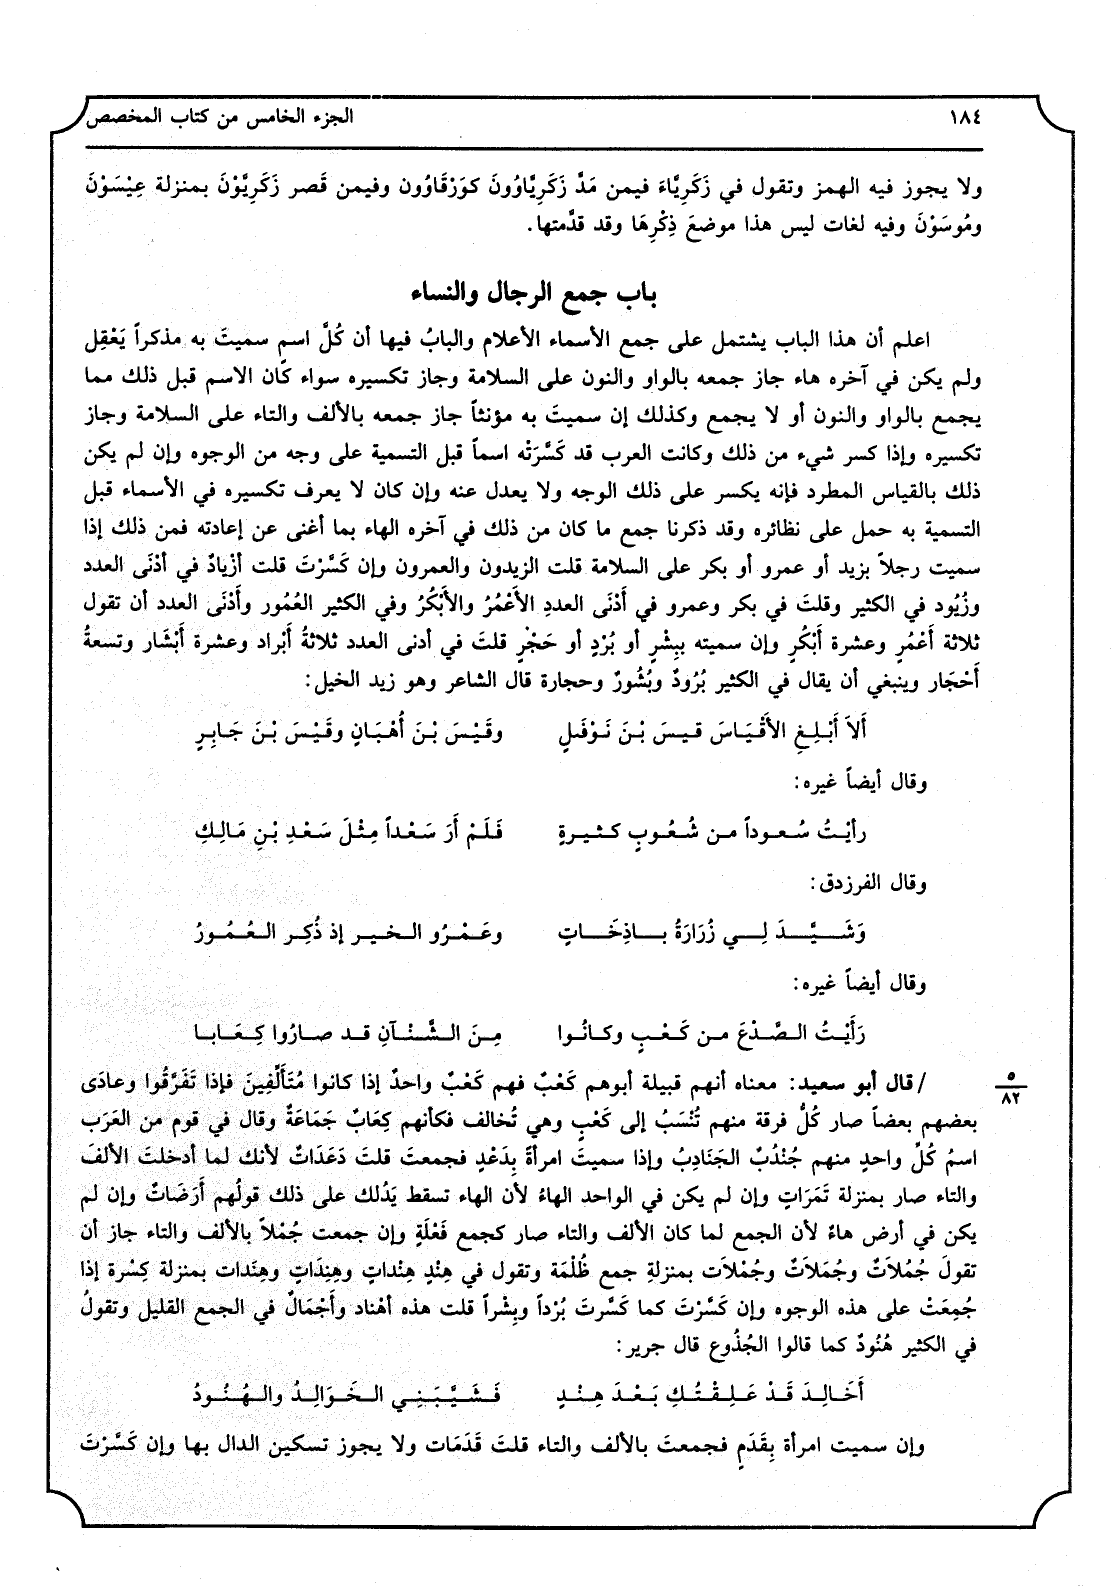 ١٨٤ الجزء الخامس من كتاب المخصص
ولا يجوز فيه الهمز وتقول في زَكَرِيَّاءَ فيمن مَدَّ زَكَرِيَّاوُونَ كوَرْقَاوُون وفيمن قَصر زَكَرِيَّوْنَ بمنزلة عِيْسَوْنَ
ومُوسَوْنَ وفيه لغات ليس هذا موضعَ ذِكْرِهَا وقد قدَّمتها.
باب جمع الرجال والنساء
اعلم أن هذا الباب يشتمل على جمع الأسماء الأعلام والبابُ فيها أن كُلَّ اسم سميتَ به مذكراً يَعْقِل
ولم يكن في آخره هاء جاز جمعه بالواو والنون على السلامة وجاز تكسيره سواء كان الاسم قبل ذلك مما
يجمع بالواو والنون أو لا يجمع وكذلك إن سميتَ به مؤنثاً جاز جمعه بالألف والتاء على السلامة وجاز
تكسيره وإذا كسر شيء من ذلك وكانت العرب قد كَسَّرَتْه اسماً قبل التسمية على وجه من الوجوه وإن لم يكن
ذلك بالقياس المطرد فإنه يكسر على ذلك الوجه ولا يعدل عنه وإن كان لا يعرف تكسيره في الأسماء قبل
التسمية به حمل على نظائره وقد ذكرنا جمع ما كان من ذلك في آخره الهاء بما أغنى عن إعادته فمن ذلك إذا
سميت رجلاً بزيد أو عمرو أو بكر على السلامة قلت الزيدون والعمرون وإن كَسَّرْتَ قلت أزْيادٌ في أدْنَى العدد
وزُيُود في الكثير وقلتَ في بكر وعمرو في أَدْنَى العددِ الأَعْمُرُ والأَبْكُرُ وفي الكثير العُمُور وأَدْنَى العدد أن تقول
ثلاثة أَعْمُرٍ وعشرة أَبْكُرٍ وإن سميته بِبِشْرٍ أو بُرْدٍ أو حَجْرٍ قلتَ في أدنى العدد ثلاثةُ أَبْراد وعشرة أَبْشَار وتسعةُ
أَحْجَار وينبغي أن يقال في الكثير بُرُودٌ وبُشُورٌ وحجارة قال الشاعر وهو زيد الخيل:
أَلاَ أَبْلِغِ الأَقْيَاسَ قيسَ بْنَ نَوْفَلٍ وقَيْسَ بْنَ أُهْبَانٍ وقَيْسَ بْنَ جَابِرٍ
وقال أيضاً غيره:
رأيْتُ سُعوداً من شُعُوبٍ كثيرةٍ فَلَمْ أَرَ سَعْداً مِثْلَ سَعْدِ بْنِ مَالِكِ
وقال الفرزدق:
وَشَيَّدَ لِي زُرَارَةُ بَاذِخَاتٍ وعَمْرُو الخير إذ ذُكِر العُمُورُ
وقال أيضاً غيره:
رَأَيْتُ الصَّدْعَ من كَعْبٍ وكانُوا مِنَ الشَّنْآنِ قد صارُوا كِعَابا
/ قال أبو سعيد: معناه أنهم قبيلة أبوهم كَعْبٌ فهم كَعْبٌ واحدٌ إذا كانوا مُتَأَلِّفِينَ فإذا تَفَرَّقُوا وعادَى
٥
٨٢
بعضهم بعضاً صار كُلُّ فرقة منهم تُنْسَبُ إلى كَعْبٍ وهي تُخالف فكأنهم كِعَابٌ جَمَاعَةٌ وقال في قوم من العَرَب
اسمُ كُلِّ واحدٍ منهم جُنْدُبٌ الجَنَادِبُ وإذا سميتَ امرأةً بِدَعْدٍ فجمعتَ قلتَ دَعَدَاتٌ لأنك لما أدخلتَ الألفَ
والتاء صار بمنزلة تَمَرَاتٍ وإن لم يكن في الواحد الهاءُ لأن الهاء تسقط يَدُلك على ذلك قولُهم أَرَضَاتٌ وإن لم
يكن في أرض هاءٌ لأن الجمع لما كان الألف والتاء صار كجمع فَعْلَةٍ وإن جمعت جُمْلاً بالألف والتاء جاز أن
تقولَ جُمُلاَتٌ وجُمَلاَتٌ وجُمْلاَت بمنزلةِ جمع ظُلْمَة وتقول في هِنْدٍ هِنْداتٍ وهِنِدَاتٍ وهِنَدات بمنزلة كِسْرة إذا
جُمِعَتْ على هذه الوجوه وإن كَسَّرْتَ كما كَسَّرتَ بُرْداً وبِشْراً قلت هذه أهْناد وأَجْمَالٌ في الجمع القليل وتقولُ
في الكثير هُنُودٌ كما قالوا الجُذُوع قال جرير:
أَخَالِدَ قَدْ عَلِقْتُكِ بَعْدَ هِنْدٍ فَشَيَّبَنِي الخَوَالِدُ والهُنُودُ
وإن سميت امرأة بِقَدَمٍ فجمعتَ بالألف والتاء قلتَ قَدَمَات ولا يجوز تسكين الدال بها وإن كَسَّرْتَ